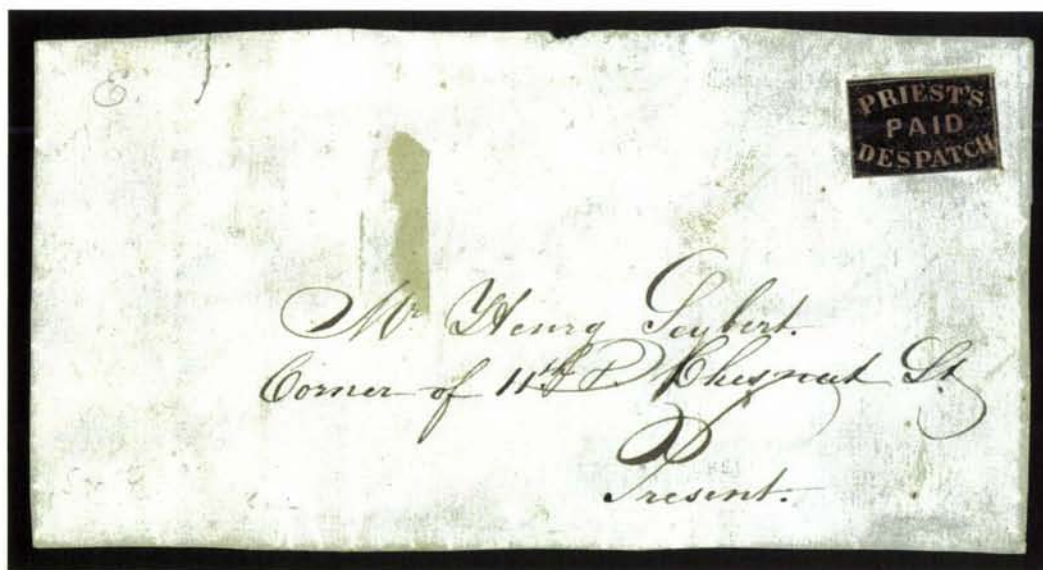 E
PRIEST'S
PAID
DESPATCH
Mr Henry Seybert.
Corner of 11th & Chesnut St
Present.